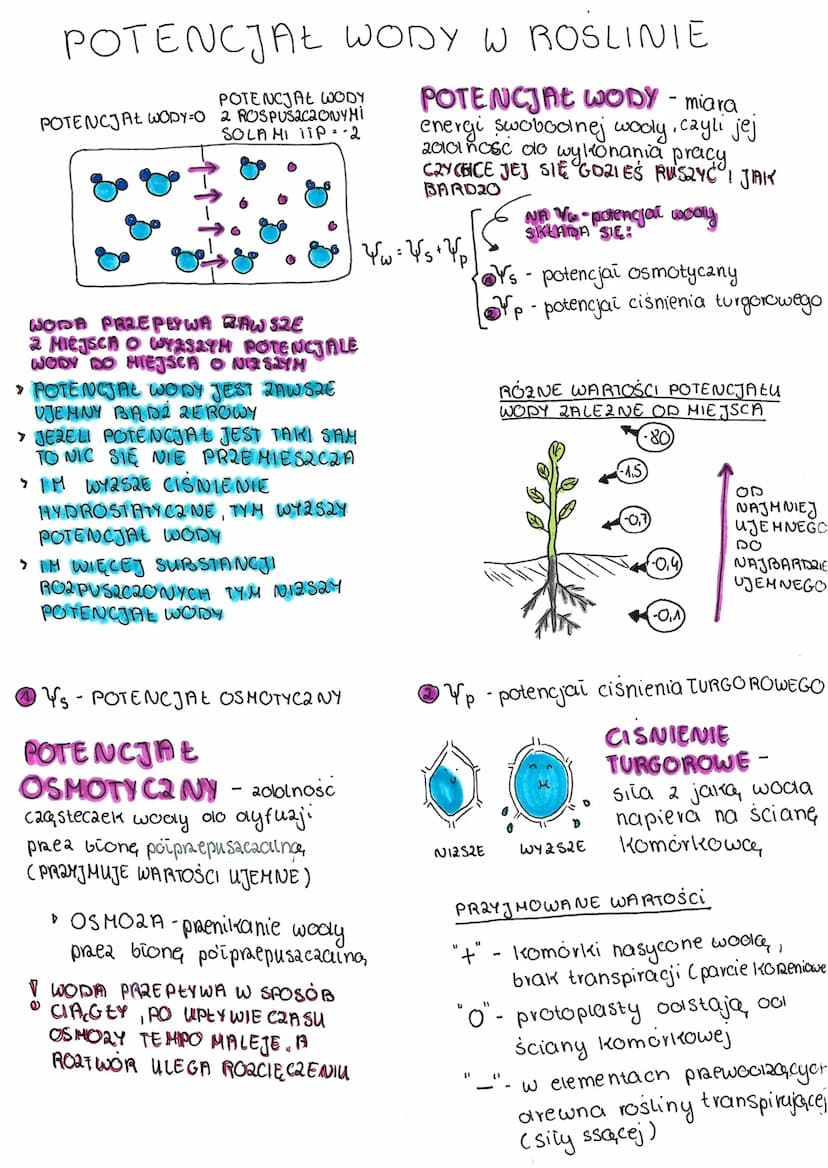 POTENCJAŁ WODY W ROŚLINIE
POTENCJAŁ WODY=0
POTENCJAŁ WODY
Z ROSPUSZCZONYMI
SOLAMI ITP = -2
POTENCJAŁ WODY - miara
energi swobodnej wody, czyli jej
zdolność do wykonania pracy
CZY CHCE JEJ SIĘ GDZIEŚ RUSZYĆ I JAK
BARDZO
NA Ψw - potencjał wody
SKŁADA SIĘ:
Ψw = Ψs + Ψp
1 Ψs - potencjał osmotyczny
2 Ψp - potencjał ciśnienia turgorowego
WODA PRZEPŁYWA ZAWSZE
Z MIEJSCA O WYŻSZYM POTENCJALE
WODY DO MIEJSCA O NIŻSZYM
> POTENCJAŁ WODY JEST ZAWSZE
UJEMNY BĄDŹ ZEROWY
> JEŻELI POTENCJAŁ JEST TAKI SAM
TO NIC SIĘ NIE PRZEMIESZCZA
> IM WYŻSZE CIŚNIENIE
HYDROSTATYCZNE, TYM WYŻSZY
POTENCJAŁ WODY
> IM WIĘCEJ SUBSTANCJI
ROZPUSZCZONYCH TYM NIŻSZY
POTENCJAŁ WODY
RÓŻNE WARTOŚCI POTENCJAŁU
WODY ZALEŻNE OD MIEJSCA
-80
-1,5
-0,7
-0,4
-0,1
OD
NAJMNIEJ
UJEMNEGO
DO
NAJBARDZIE
UJEMNEGO
1 Ψs - POTENCJAŁ OSMOTYCZNY
POTENCJAŁ
OSMOTYCZNY - zdolność
cząsteczek wody do dyfuzji
przez błonę półprzepuszczalną
(PRZYJMUJE WARTOŚCI UJEMNE)
OSMOZA - przenikanie wody
przez błonę półprzepuszczalną
! WODA PRZEPŁYWA W SPOSÓB
CIĄGŁY, PO UPŁYWIE CZASU
OSMOZY TEMPO MALEJE, A
ROZTWÓR ULEGA ROZCIĘCZENIU
2 Ψp - potencjał ciśnienia TURGOROWEGO
NIŻSZE
WYŻSZE
CIŚNIENIE
TURGOROWE -
siła z jaką woda
napiera na ścianę
komórkową
PRZYJMOWANE WARTOŚCI
"+" - komórki nasycone wodą,
brak transpiracji (parcie korzeniowe
"0" - protoplasty odstają od
ściany komórkowej
"-" - w elementach przewodzących
drewna rośliny transpirującej
(siły ssącej)